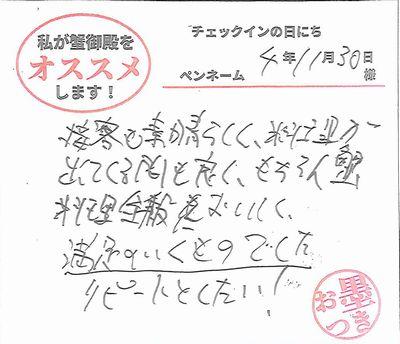 私が蟹御殿を
オススメ
します！
チェックインの日にち
4年11月30日
ペンネーム
様
接客も素晴らしく、料理が
出てくる間も良く、もちろん蟹
料理全般美おいしく、
満足のいくものでした
リピートとしたい！
墨つき